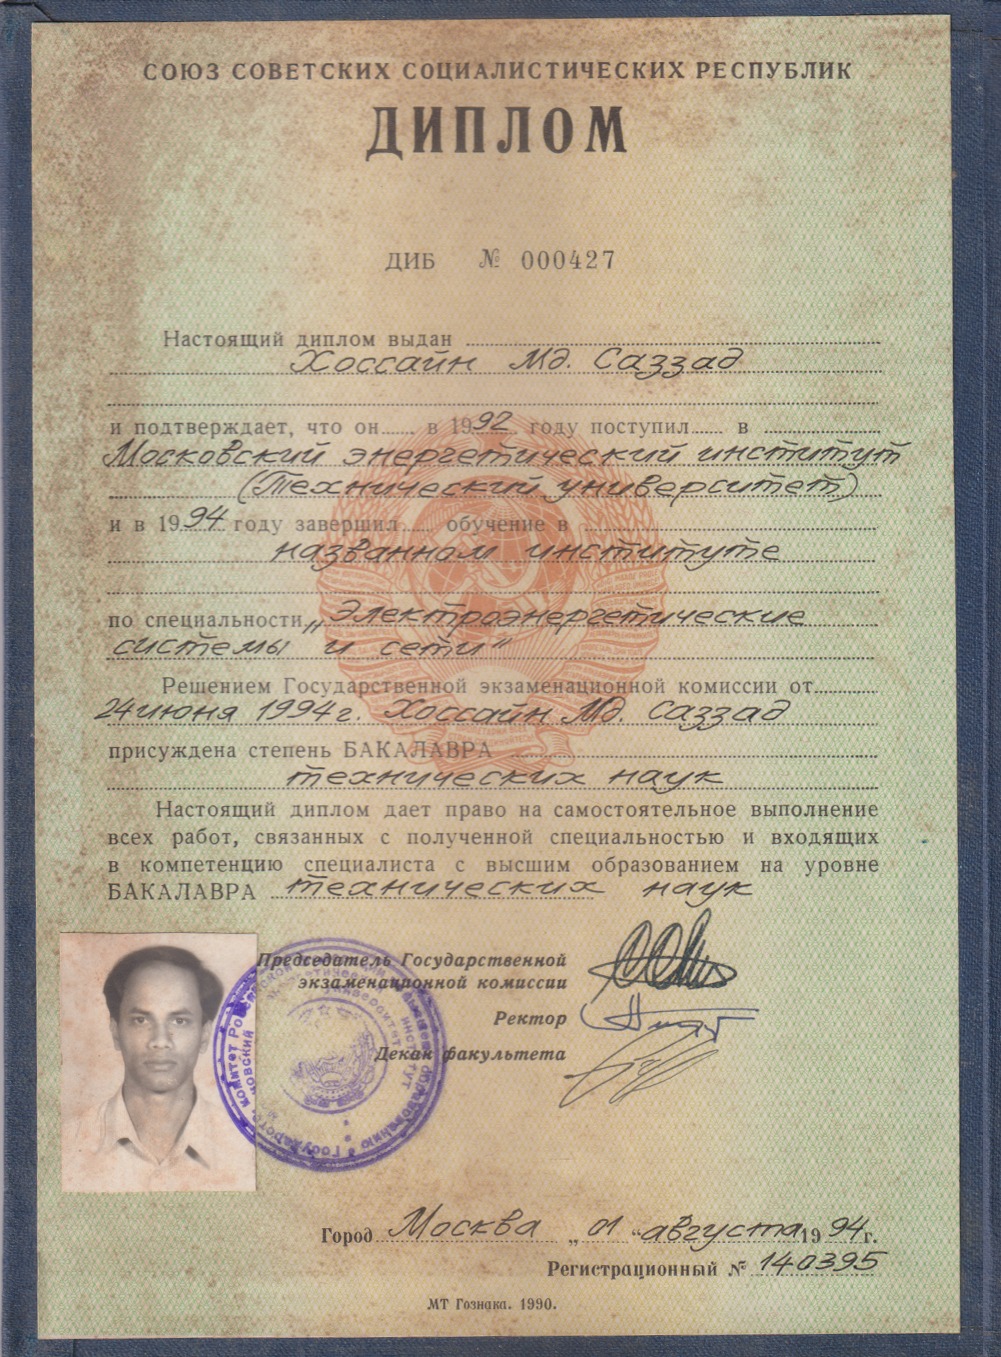 СОЮЗ СОВЕТСКИХ СОЦИАЛИСТИЧЕСКИХ РЕСПУБЛИК
ДИПЛОМ
ДИБ № 000427
Настоящий диплом выдан
Хоссайн Мд. Саззад
и подтверждает, что он в 1992 году поступил в
Московский энергетический институт
(Технический университет)
и в 1994 году завершил обучение в
названном институте
по специальности „Электроэнергетические
системы и сети"
Решением Государственной экзаменационной комиссии от
24 июня 1994 г. Хоссайн Мд. Саззад
присуждена степень БАКАЛАВРА
технических наук
Настоящий диплом дает право на самостоятельное выполнение
всех работ, связанных с полученной специальностью и входящих
в компетенцию специалиста с высшим образованием на уровне
БАКАЛАВРА технических наук
Председатель Государственной
экзаменационной комиссии
Ректор
Декан факультета
Город Москва „01 “ августа 1994 г.
Регистрационный № 140395
МТ Гознака. 1990.